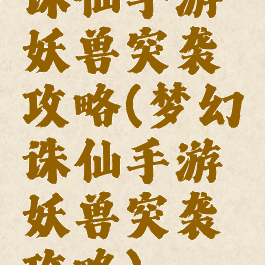 诛仙手游
妖兽突袭
攻略(梦幻
诛仙手游
妖兽突袭
攻略)